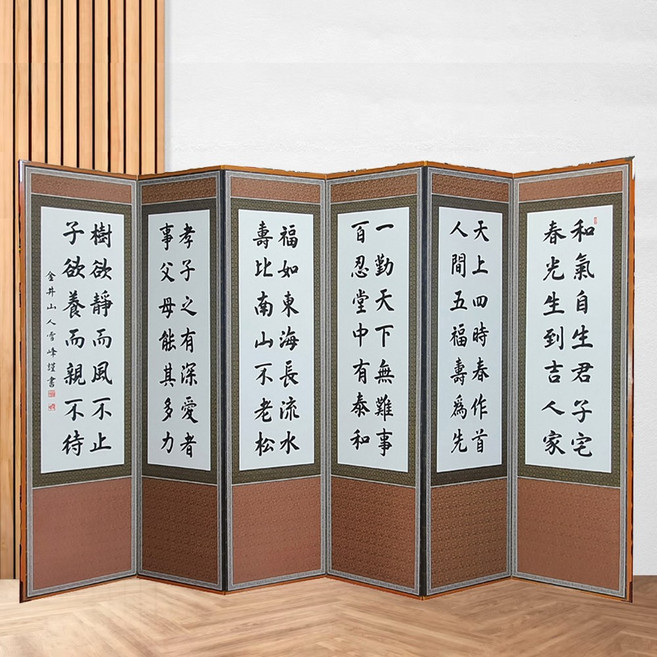 和氣自生君子宅
春光生到吉人家
天上四時春作首
人間五福壽爲先
一勤天下無難事
百忍堂中有泰和
福如東海長流水
壽比南山不老松
孝子之有深愛者
事父母能其多力
樹欲靜而風不止
子欲養而親不待
金井山人雪峰 書